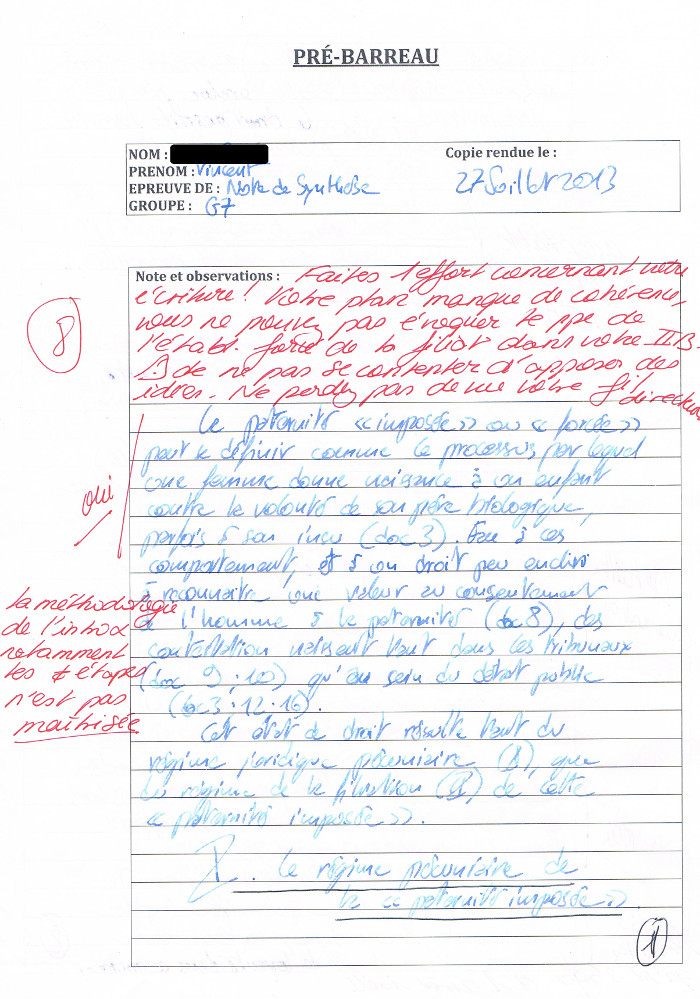 PRÉ-BARREAU
NOM :
PRENOM : Vincent
EPREUVE DE : Note de Synthèse
GROUPE : G7
Copie rendue le :
27 Juillet 2013
Note et observations : Faites 1 effort concernant votre
écriture ! Votre plan manque de cohérence,
vous ne pouvez pas évoquer le ppe de
l'établ. forcé de la filiat° dans votre II.B.
de ne pas se contenter d'apposer des
idées. Ne perdez pas de vue votre fil directeur
8
La paternité « imposée » ou « forcée »
peut se définir comme le processus par lequel
une femme donne naissance à un enfant
contre la volonté de son père biologique,
parfois à son insu (doc 3). Face à ces
comportement, et à un droit peu enclin
à reconnaitre une valeur au consentement
de l'homme à la paternité (doc 8), des
contestation naissent tant dans les tribunaux
(doc 9 ; 10) qu'au sein du débat public
(doc 3 . 12 . 16).
oui
la méthodologie
de l'introd
notamment
les ≠ étapes
n'est pas
maîtrisée
Cet état de droit résulte tant du
régime juridique pécuniaire (I), que
du régime de la filiation (II), de cette
« paternité imposée ».
I. Le régime pécuniaire de
la « paternité imposée ».
1